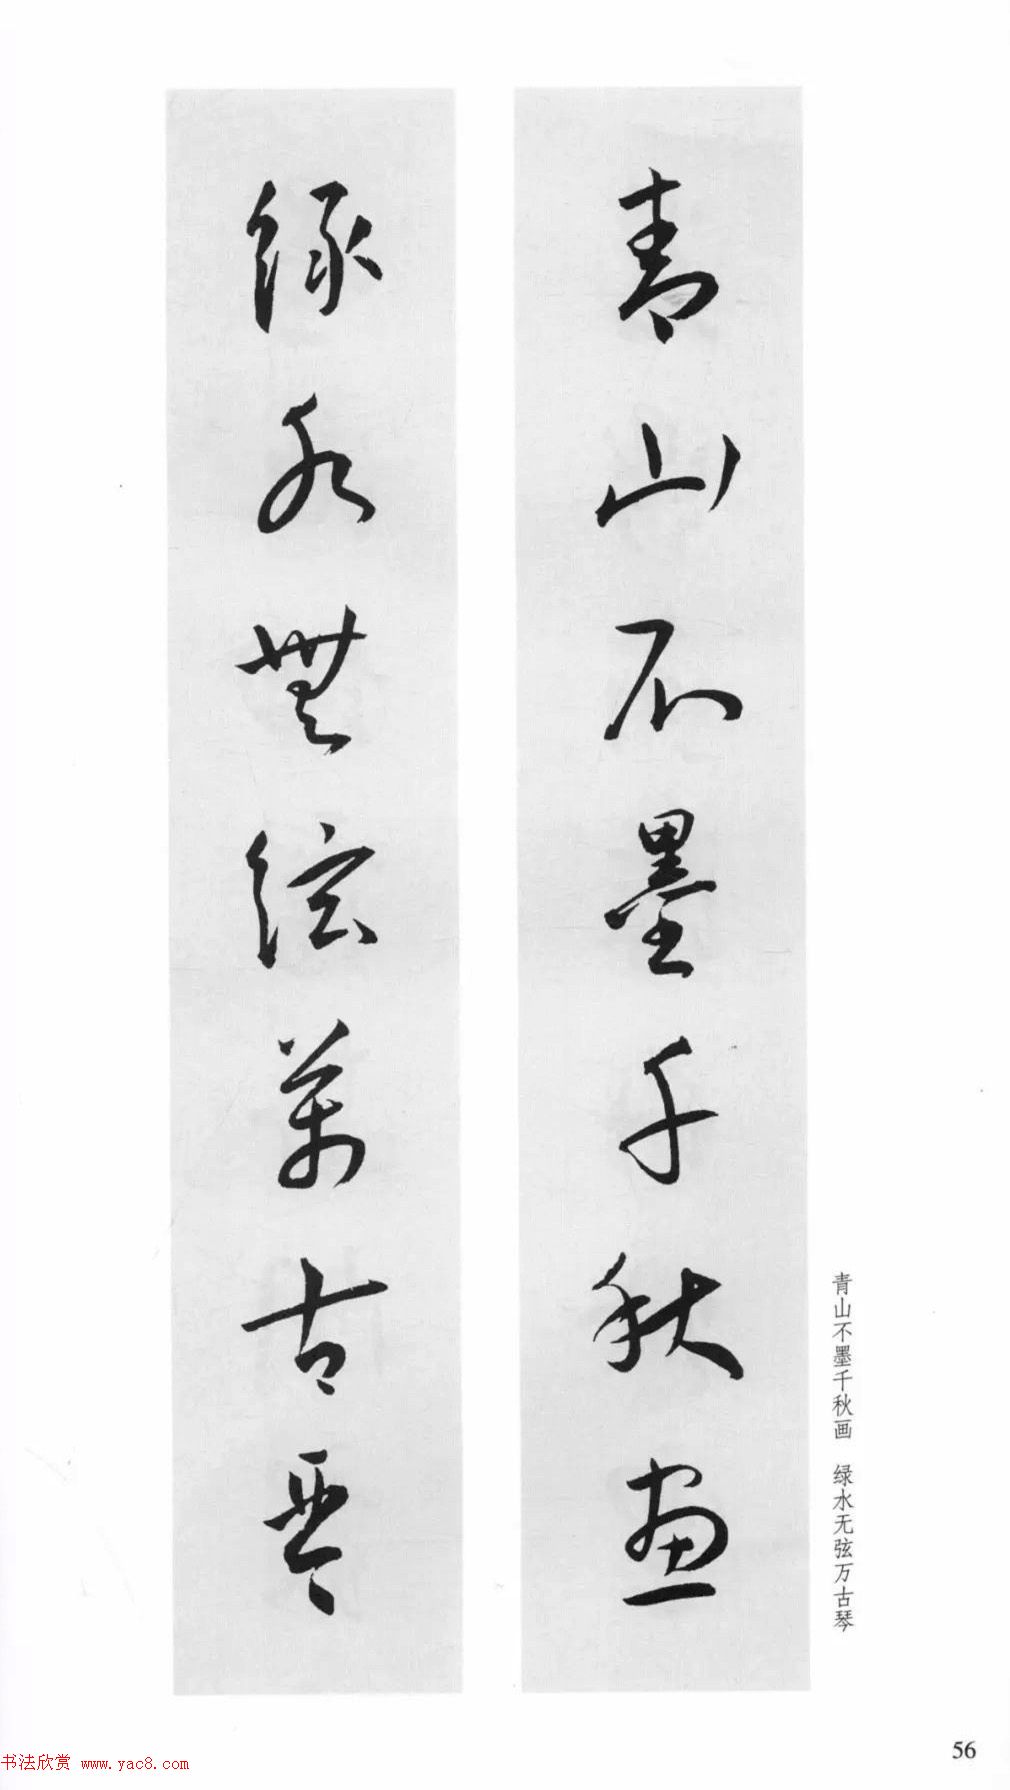 青山不墨千秋畫
綠水無絃萬古琴
青山不墨千秋画 绿水无弦万古琴
56
书法欣赏 www.yac8.com